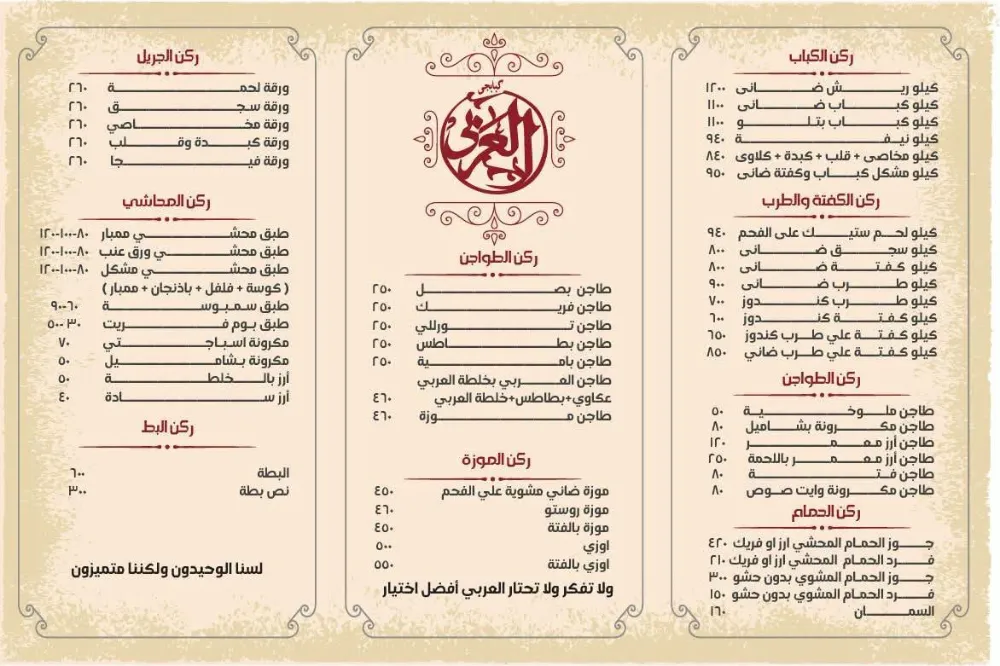 ركن الكباب
كيلو ريش ضانى ١٢٠٠
كيلو كباب ضانى ١١٠٠
كيلو كباب بتلو ١١٠٠
كيلو نيفة ٩٤٠
كيلو مخاصى + قلب + كبدة + كلاوى ٨٤٠
كيلو مشكل كباب وكفتة ضانى ٩٥٠
ركن الكفتة والطرب
كيلو لحم ستيك على الفحم ٩٤٠
كيلو سجق ضانى ٨٠٠
كيلو كفتة ضانى ٨٠٠
كيلو طرب ضانى ٩٠٠
كيلو طرب كندوز ٧٠٠
كيلو كفتة كندوز ٦٠٠
كيلو كفتة علي طرب كندوز ٦٥٠
كيلو كفتة علي طرب ضاني ٨٥٠
ركن الطواجن
طاجن ملوخية ٥٠
طاجن مكرونة بشاميل ٨٠
طاجن أرز معمر ١٢٠
طاجن أرز معمر باللحمة ٢٥٠
طاجن فتة ٨٠
طاجن مكرونة وايت صوص ٨٠
ركن الحمام
جوز الحمام المحشي ارز او فريك ٤٢٠
فرد الحمام المحشي ارز او فريك ٢١٠
جوز الحمام المشوي بدون حشو ٣٠٠
فرد الحمام المشوي بدون حشو ١٥٠
السمان ١٦٠
كبابجى
العربى
ركن الطواجن
طاجن بصل ٢٥٠
طاجن فريك ٢٥٠
طاجن تورللي ٢٥٠
طاجن بطاطس ٢٥٠
طاجن بامية ٢٥٠
طاجن العربي بخلطة العربي
عكاوي+بطاطس+خلطة العربي ٤٦٠
طاجن موزة ٤٦٠
ركن الموزة
موزة ضاني مشوية علي الفحم ٤٥٠
موزة روستو ٤٦٠
موزة بالفتة ٤٥٠
اوزي ٥٠٠
اوزي بالفتة ٥٥٠
ولا تفكر ولا تحتار العربي أفضل اختيار
ركن الجريل
ورقة لحمة ٢٦٠
ورقة سجق ٢٦٠
ورقة مخاصي ٢٦٠
ورقة كبدة وقلب ٢٦٠
ورقة فيجا ٢٦٠
ركن المحاشي
طبق محشي ممبار ٨٠-١٠٠-١٢٠
طبق محشي ورق عنب ٨٠-١٠٠-١٢٠
طبق محشي مشكل ٨٠-١٠٠-١٢٠
( كوسة + فلفل + باذنجان + ممبار )
طبق سمبوسة ٦٠-٩٠
طبق بوم فريت ٣٠-٥٠
مكرونة اسباجتي ٧٠
مكرونة بشاميل ٥٠
أرز بالخلطة ٥٠
أرز سادة ٤٠
ركن البط
البطة ٦٠٠
نص بطة ٣٠٠
لسنا الوحيدون ولكننا متميزون